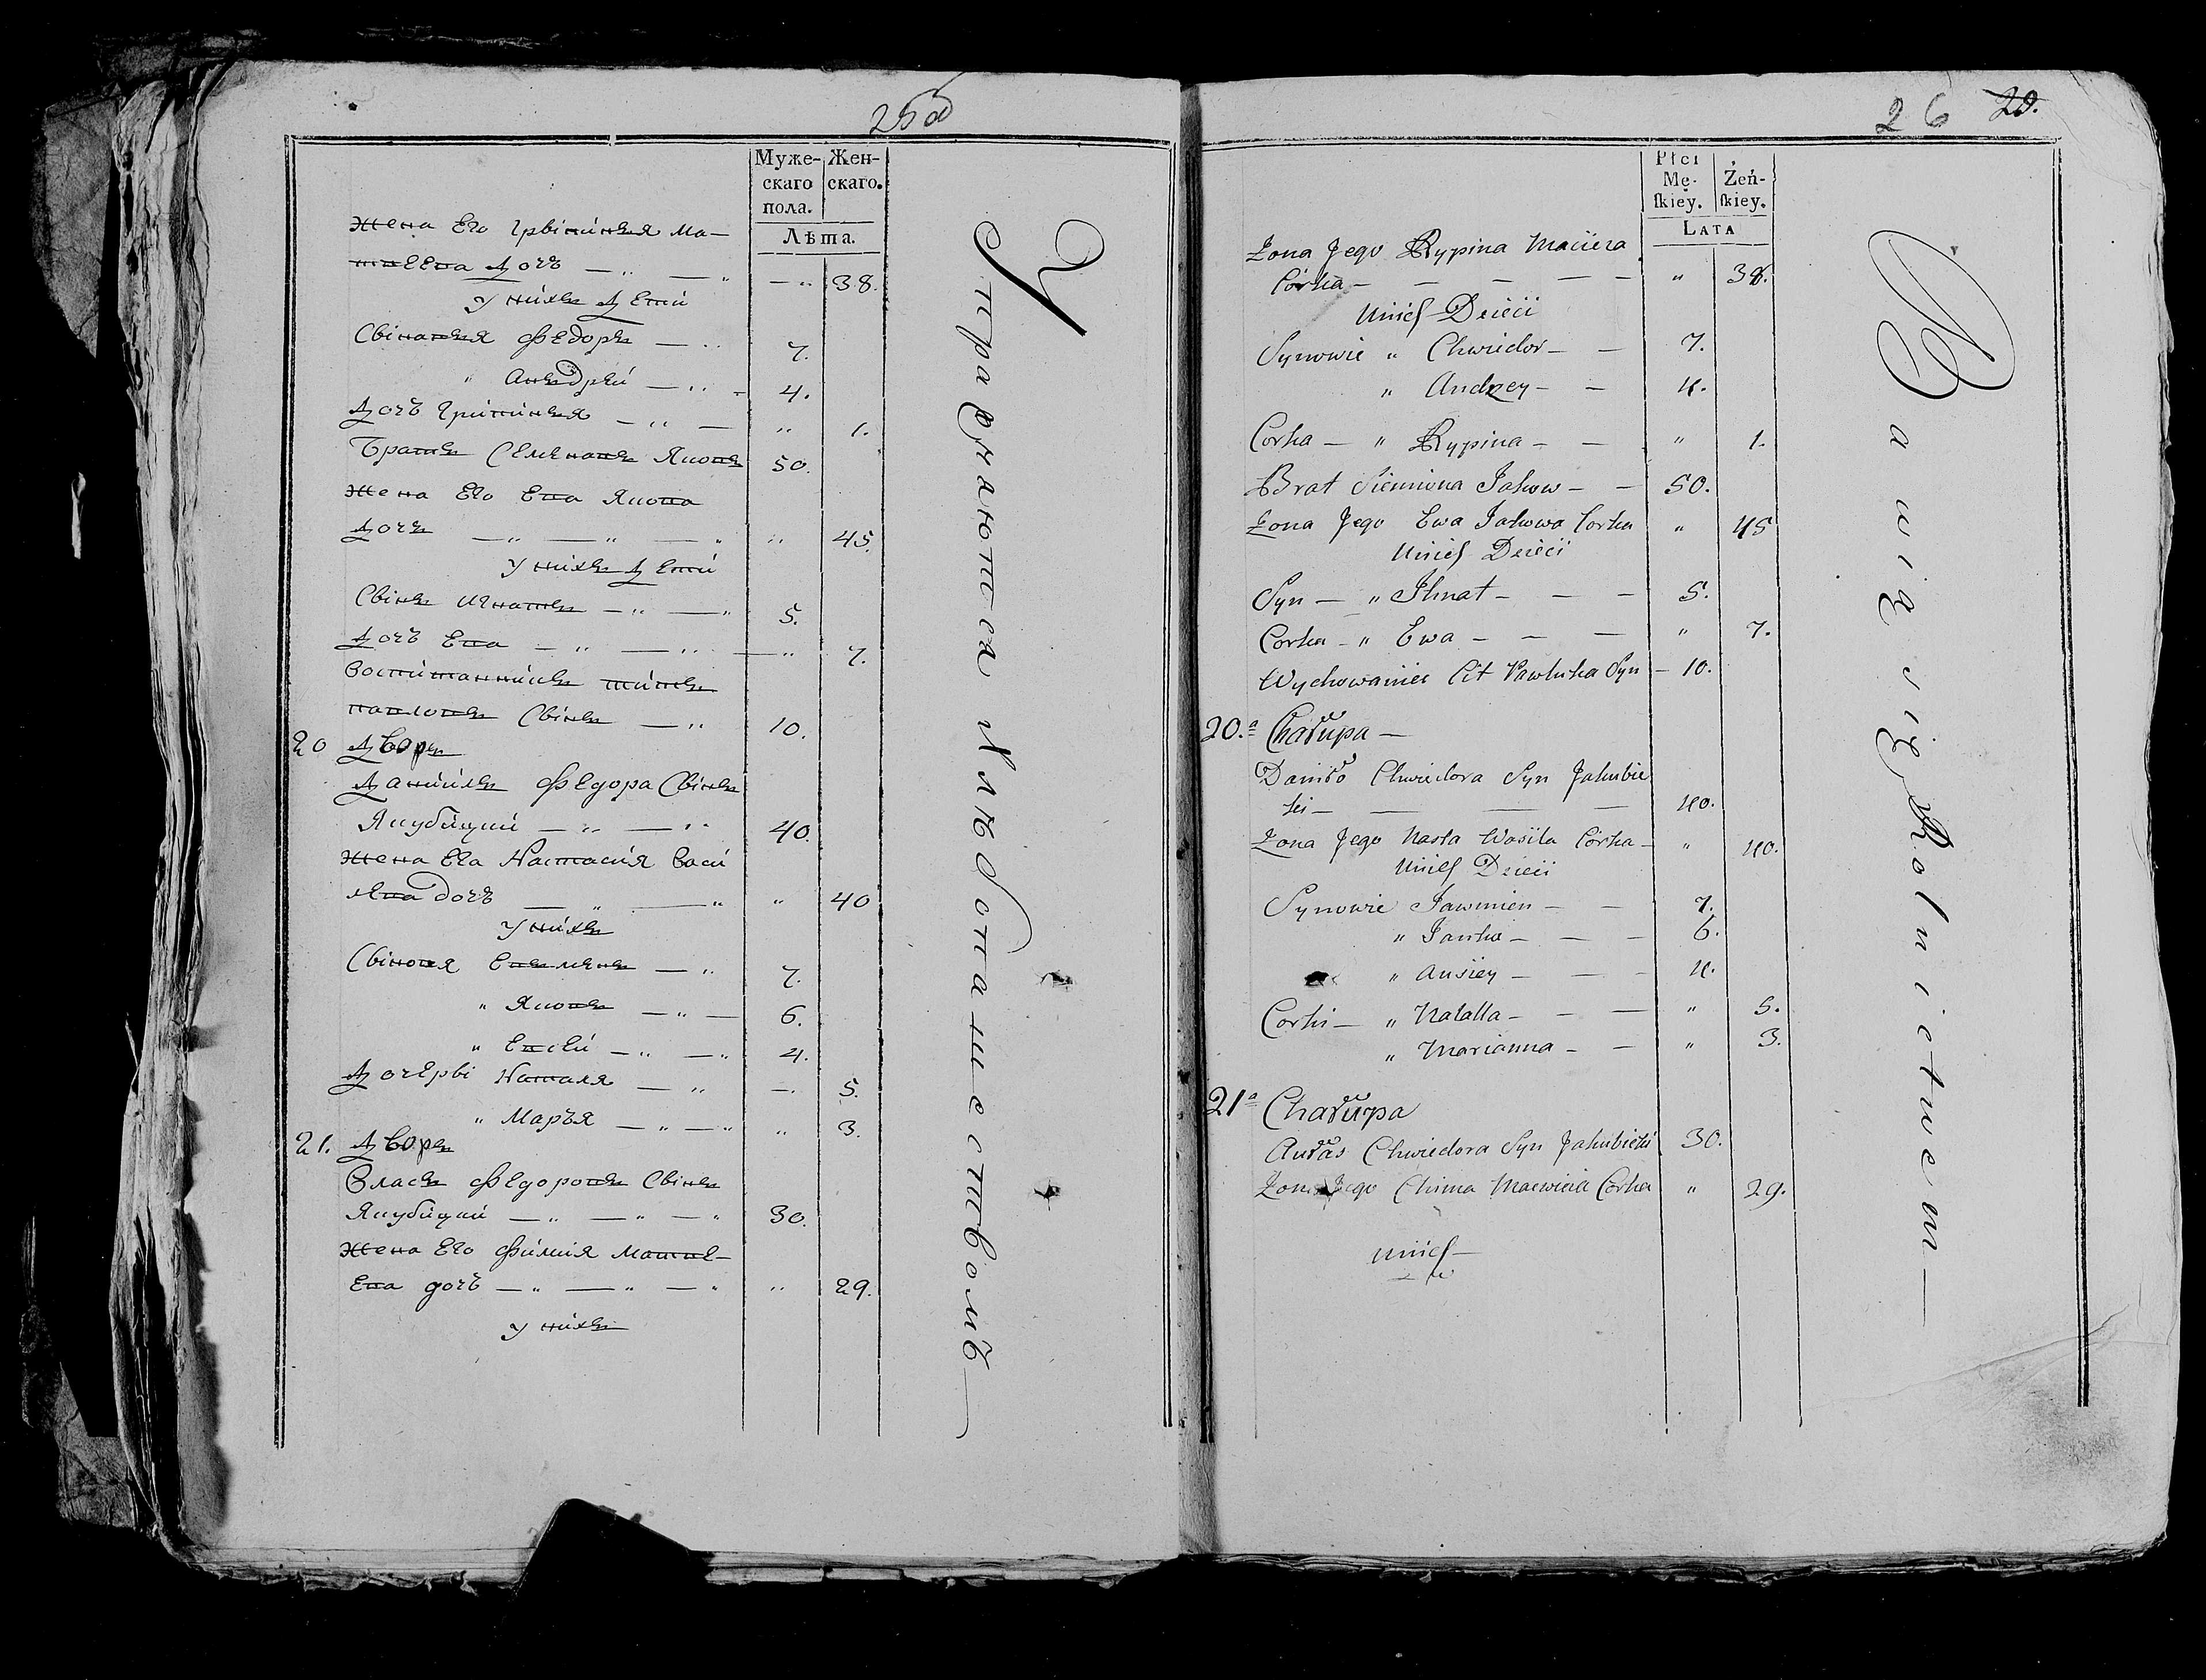 25 об
Муже-
скаго
пола.
Жен-
скаго.
Лѣта.
Жена Его Грипиня Ма-
твеева дочъ — „ — „ — „ 38.
У нихъ Дети
Сыновья Федоръ — „ 7.
„ Андрей — „ — 4.
Дочъ Грипиня — „ — „ 1.
Братъ Семенавъ Яковъ 50.
Жена Его Ева Якова
дочь — „ — „ — „ „ 45.
У нихъ Дети
Сынъ Игнатъ — „ — „ 5.
Дочъ Ева — „ — „ — „ 7.
Воспитанникъ Титъ
павловъ Сынъ — „ 10.
20 Дворъ
Данiилъ Федора Сынъ
Якубицкий — „ — „ 40.
Жена Его Настасия Васи
лева дочъ — „ — „ „ 40
У нихъ
Сыновя Евъменъ — „ 7.
„ Яковъ — „ — 6.
„ Евсей — „ — „ 4.
Дочеры Наталя — „ — 5.
„ Маръя — „ — „ „ 3.
21. Дворъ
Власъ Федоровъ Сынъ
Якубицкий — „ — „ — „ 30.
Жена Его Фимия Матве-
ева дочъ — „ — „ — „ „ 29.
У нихъ
Упражнаются Хлѣбопашествомъ
26 20.
Płci
Mę-
ſkiey.
Żeń-
ſkiey.
LATA
Żona Jego Rypina Macieia
Córka — — — — — „ 38.
Unich Dzieci
Synowie „ Chwiedor — — 7.
„ Andrzey — — 4.
Corka — „ Rypina — — „ 1.
Brat Siemiona Jakow — — 50.
Żona Jego Ewa Jakowa Corka „ 45
Unich Dzieci
Syn — „ Ihnat — — — 5.
Corka — „ Ewa — — — „ 7.
Wychowaniec Cit Pawluka Syn — 10.
20.a Chałupa —
Daniło Chwiedora Syn Jakubic
ki — — — — 40.
Żona Jego Nasta Wasila Córka — „ 40.
Unich Dzieci
Synowie Jawmien — — 7.
„ Janka — — — 6.
„ Ausiey — — — 4.
Corki — „ Natalla — — — „ 5.
„ Marianna — — „ 3.
21a Chałupa
Aułas Chwiedora Syn Jakubicki 30.
Żona Jego Chima Macwieia Corka „ 29.
Unich —
Bawią się Rolnictwem —